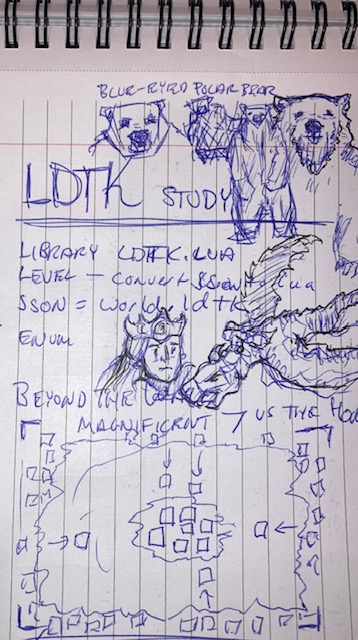 BLUE-EYED POLAR BEAR
LDTK STUDY
LIBRARY LDTK.LUA
LEVEL - CONVERT JSON TO LUA
JSON = World.ldtk
ENUM
BEYOND THE
MAGNIFICENT 7 VS THE